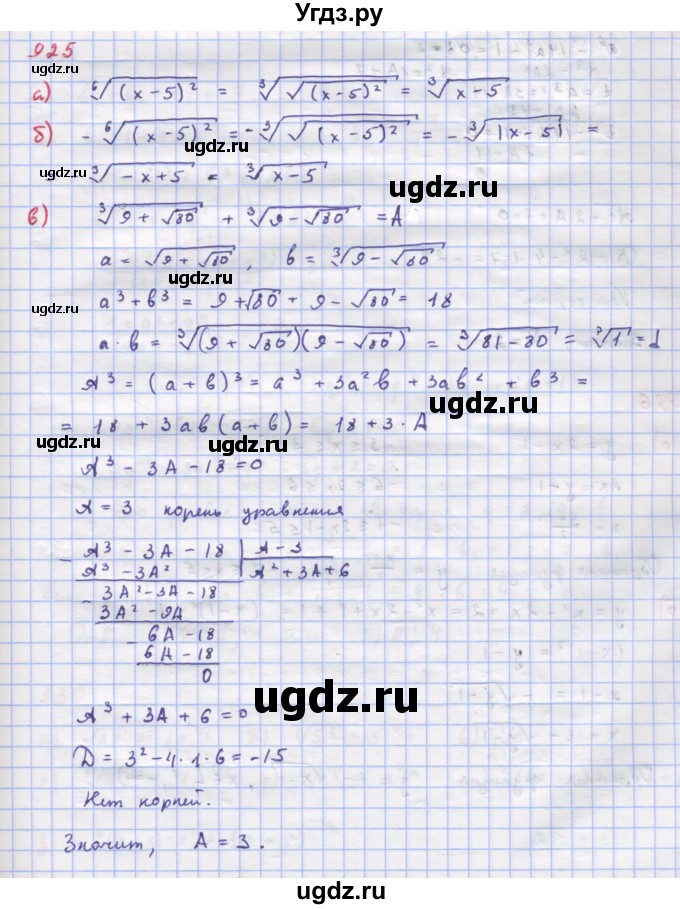 Угдз.ру
925
ugdz.ru
а) ⁶√((x-5)²) = ³√(√((x-5)²)) = ³√(x-5)
ugdz.ru
б) -⁶√((x-5)²) = -³√(√((x-5)²)) = -³√(|x-5|) =
ugdz.ru
³√(-x+5) = ³√(x-5)
ugdz.ru
ugdz.ru
в) ³√(9+√80) + ³√(9-√80) = A
a = √(9+√80), b = ³√(9-√80)
ugdz.ru
ugdz.ru
a³+b³ = 9+√80 + 9-√80 = 18
ugdz.ru
a·b = ³√((9+√80)(9-√80)) = ³√(81-80) = ³√1 = 1
A³ = (a+b)³ = a³ + 3a²b + 3ab² + b³ =
ugdz.ru
= 18 + 3ab(a+b) = 18+3·A
ugdz.ru
A³ - 3A - 18 = 0
ugdz.ru
A = 3 корень уравнения
A³ - 3A - 18 | A-3
A³ - 3A² | A²+3A+6
3A²-3A-18
ugdz.ru
3A²-9A
6A-18
6A-18
0
ugdz.ru
A³ + 3A + 6 = 0
D = 3²-4·1·6 = -15
Нет корней.
ugdz.ru
Значит, A = 3.
ugdz.ru